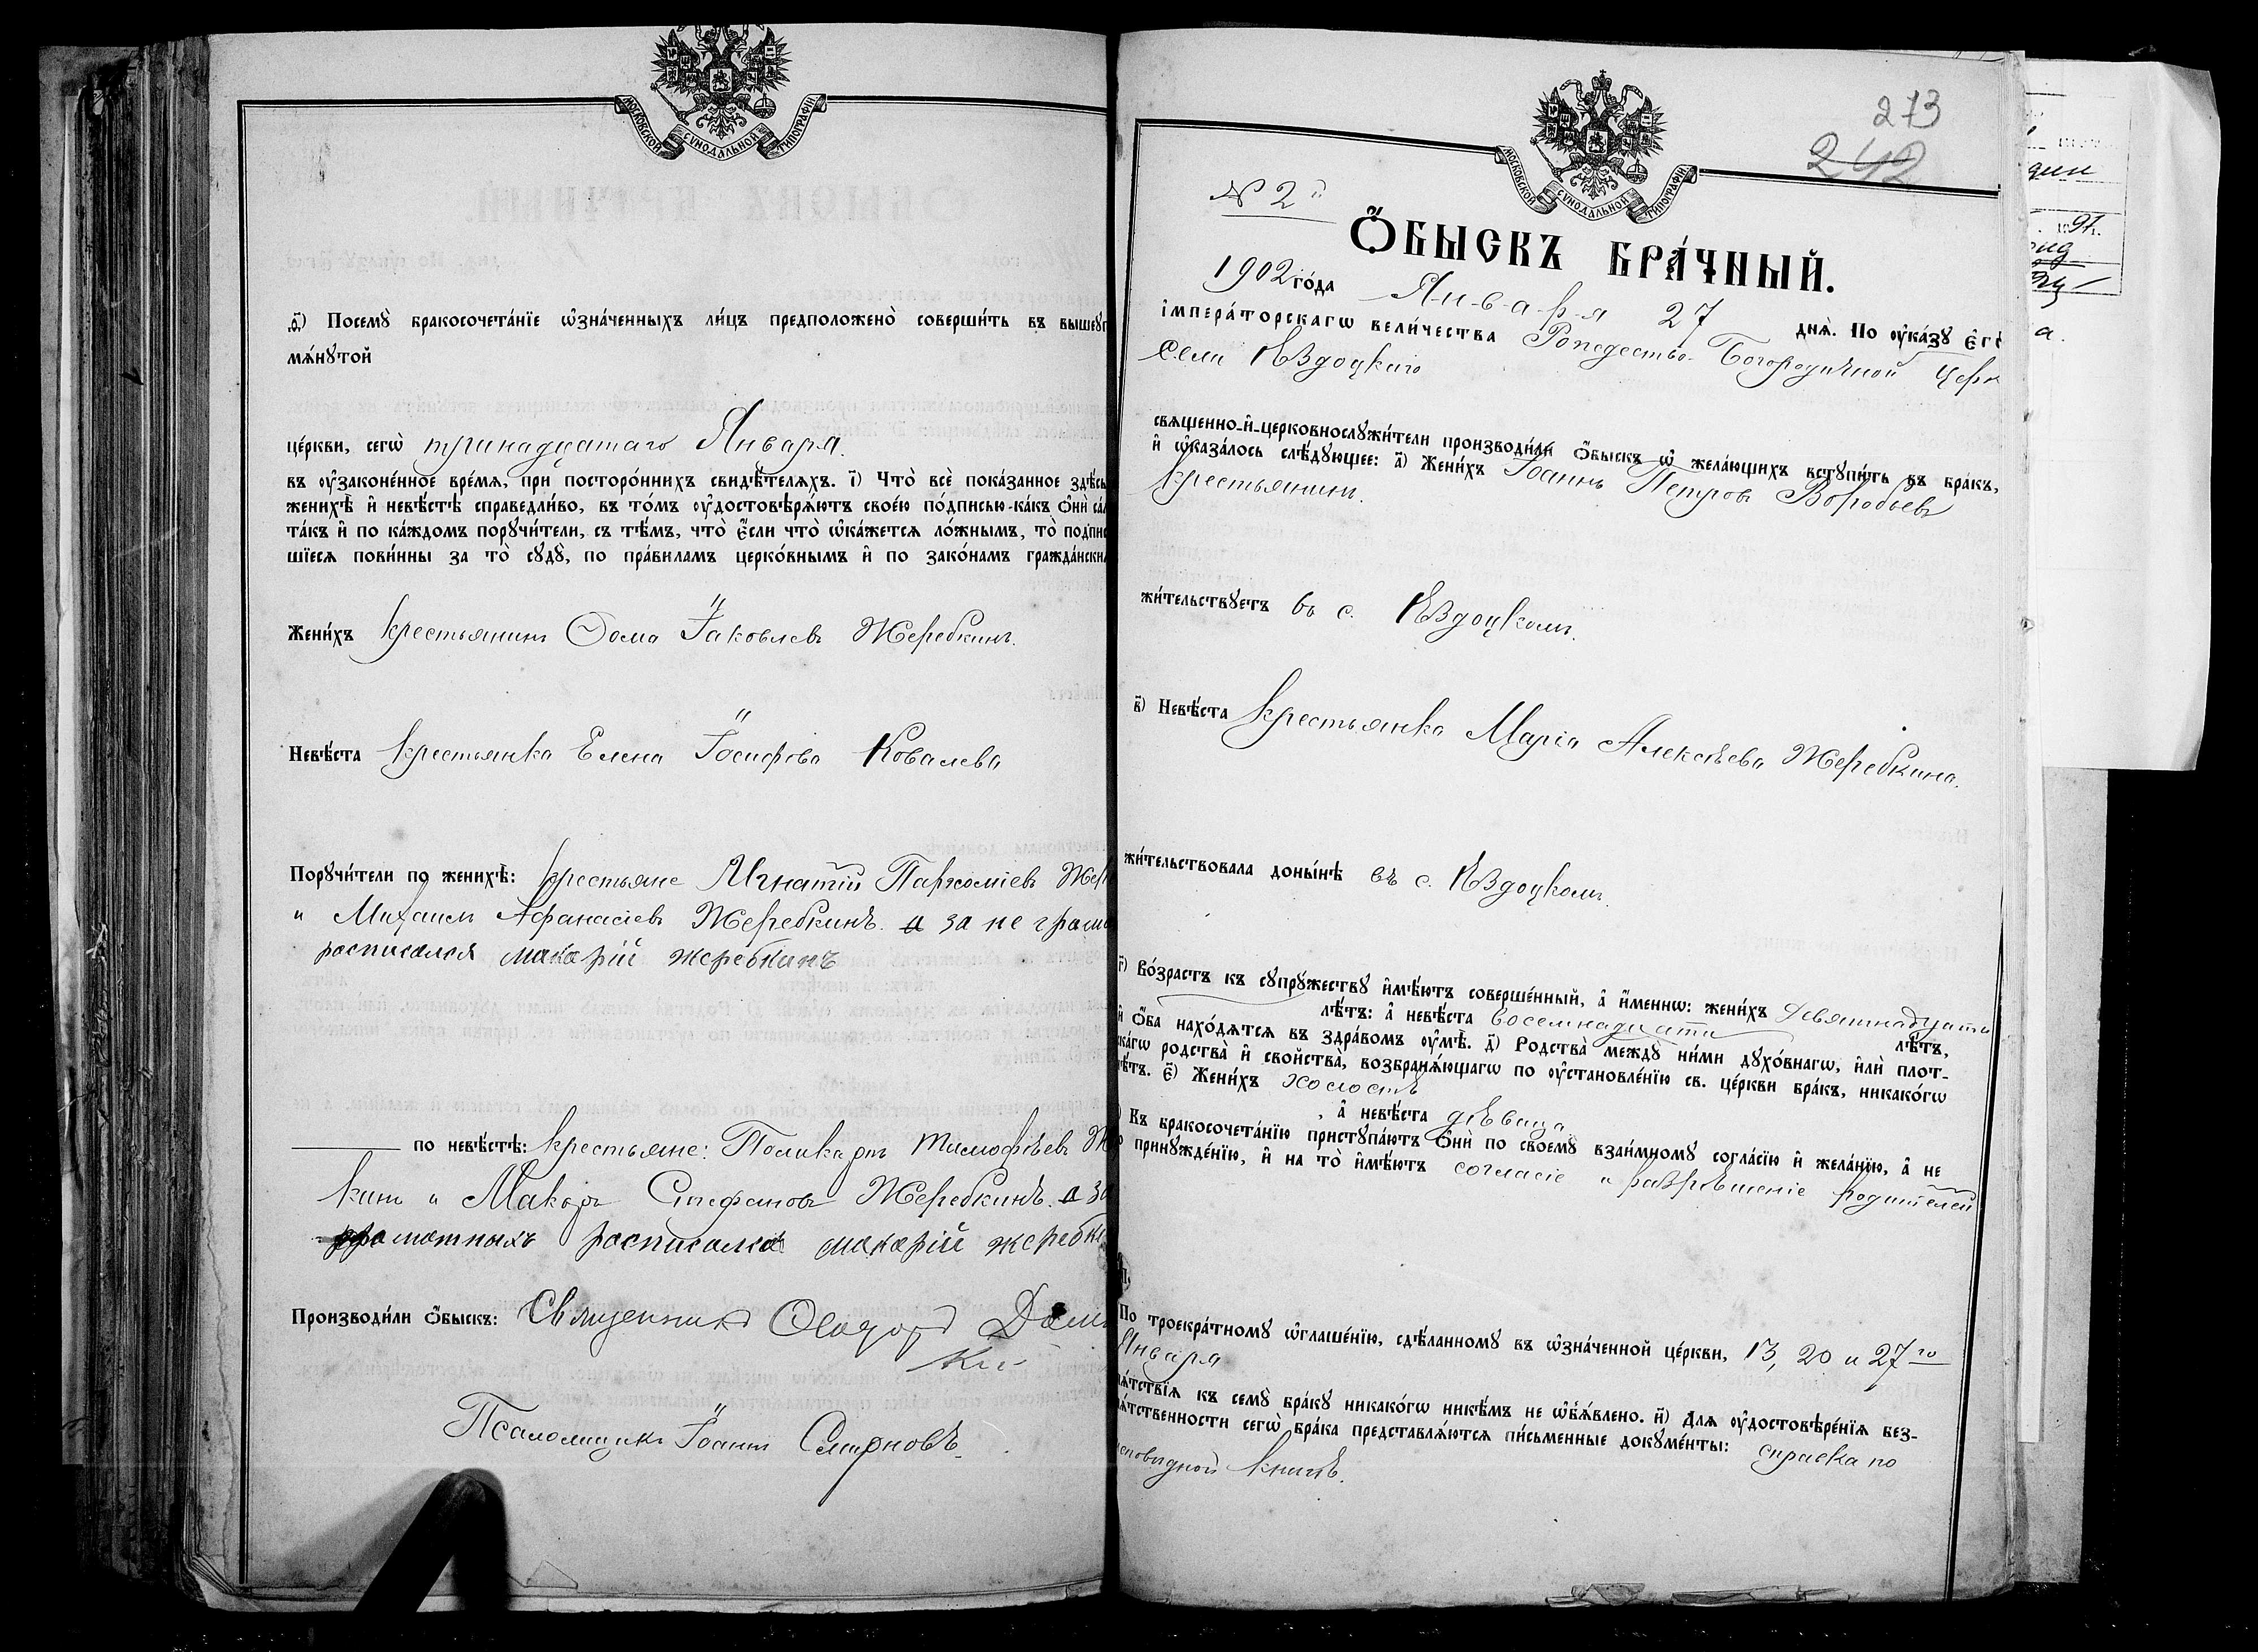 МОСКОВСКОЙ СѴНОДАЛЬНОЙ ТИПОГРАФІИ.
ѳ҃) Посемꙋ̀ бракосочета́нїе ѡ҆зна́ченныхъ ли́цъ предположено̀ соверши́ть въ вышеꙋп
мѧ́нꙋтой
це́ркви, сегѡ̀ тринадцатаго Января.
въ ᲂу҆законе́нное вре́мѧ, прѝ посторо́ннихъ свидѣ́телѧхъ. і҃) Что̀ всѐ пока́занное здѣ́сь
женихѣ̀ и҆ невѣ́стѣ справедли́во, въ то́мъ ᲂу҆достовѣрѧ́ютъ свое́ю по́дписью-ка́къ ѻ҆нѝ са́
та́къ и҆ по ка́ждомъ порꙋчи́тели, съ тѣ́мъ, что̀ є҆́сли что̀ ѡ҆ка́жетсѧ ло́жнымъ, то̀ подпис
шїесѧ пови́нны за то̀ сꙋдꙋ̀, по пра́виламъ церко́внымъ и҆ по зако́намъ гражда́нски
Жени́хъ крестьянинъ Ѳома Іаковлевъ Жеребкинъ.
Невѣ́ста крестьянка Елена Іосифова Ковалева
Порꙋчи́тели по женихѣ̀: крестьяне Игнатій Парѳоміевъ Жер
и Михаилъ Афанасіевъ Жеребкинъ. а за не грам
росписался макарій жеребкинъ
по невѣ́стѣ: крестьяне: Поликарпъ Тимоѳѣевъ Ж
кинъ и Макаръ Стефановъ Жеребкинъ. а за
грамотныхъ росписался макарій жеребк
Производи́ли ѻ҆́быскъ: Священникъ Ѳеодоръ
кій
Псаломщикъ Іоаннъ Смирновъ.
273
242
МОСКОВСКОЙ СѴНОДАЛЬНОЙ ТИПОГРАФІИ.
№ 2й
Ѻ҆́БЫСКЪ БРА́ЧНЫЙ.
1902 го́да Января 27 днѧ̀. По ᲂу҆ка́зꙋ Є҆гѡ̀
і҆мпера́торскагѡ вели́чества Рождество-Богородичной церк
села Ездоцкаго
свѧщенно-и҆-церковнослꙋжи́тели производи́ли ѻ҆́быскъ ѡ҆ жела́ющихъ встꙋпи́ть въ бра́къ,
и҆ ѡ҆каза́лось слѣ́дꙋющее: а҃) Жени́хъ Іоаннъ Петровъ Воробьевъ
крестьянинъ.
жи́тельствꙋетъ въ с. Ездоцкомъ.
в҃) Невѣ́ста крестьянка Марія Алексѣева Жеребкина.
жи́тельствовала доны́нѣ въ с. Ездоцкомъ.
г҃) Во́зрастъ къ сꙋпрꙋ́жествꙋ и҆мѣ́ютъ соверше́нный, а҆ и҆́меннѡ: жени́хъ девятнадцати
лѣ́тъ: а҆ невѣ́ста восемнадцати лѣ́тъ,
и҆ ѻ҆́ба нахо́дѧтсѧ въ здра́вомъ ᲂу҆мѣ̀. д҃) Родства̀ междꙋ̀ ни́ми дꙋхо́внагѡ, и҆лѝ плот-
ска́гѡ родства̀ и҆ сво́йства̀, возбранѧ́ющагѡ по ᲂу҆становле́нїю св. це́ркви бра́къ, никако́гѡ
нѣ́тъ. є҃) Жени́хъ холостъ
, а҆ невѣ́ста дѣвица.
) Къ бракосочета́нїю пристꙋпа́ютъ ѻ҆нѝ по своемꙋ̀ взаи́мномꙋ согла́сїю и҆ жела́нїю, а҆ не
по принꙋжде́нїю, и҆ на то̀ и҆мѣ́ютъ согласіе и разрѣшеніе родителей
По троекра́тномꙋ ѡ҆глаше́нїю, сдѣ́ланномꙋ въ ѡ҆зна́ченной це́ркви, 13, 20 и 27го
Января
пѧ́тствїѧ къ семꙋ̀ бра́кꙋ никако́гѡ никѣ́мъ не ѡ҆б̾ѧ́влено. и҃) Длѧ ᲂу҆достовѣре́нїѧ без-
пѧ́тственности сегѡ̀ бра́ка представлѧ́ютсѧ пи́сьменные докꙋме́нты: справка по
исповѣдной книгѣ.